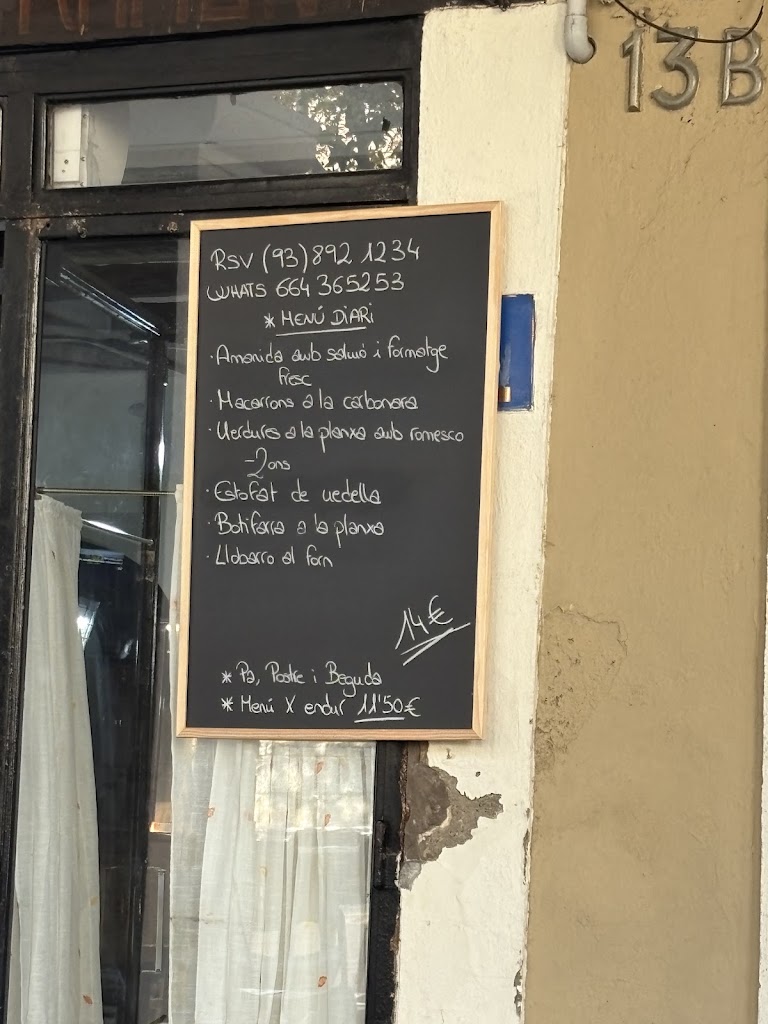 13B
RSV (93) 892 1234
WHATS 664 365253
* MENÚ DIARI
· Amanida amb salmó i formatge
fresc
· Macarrons a la carbonara
· Verdures a la planxa amb romesco
- 2ons
· Estofat de vedella
· Botifarra a la planxa
· Llobarro al forn
14€
* Pa, Postre i Beguda
* Menú X endur 11'50€